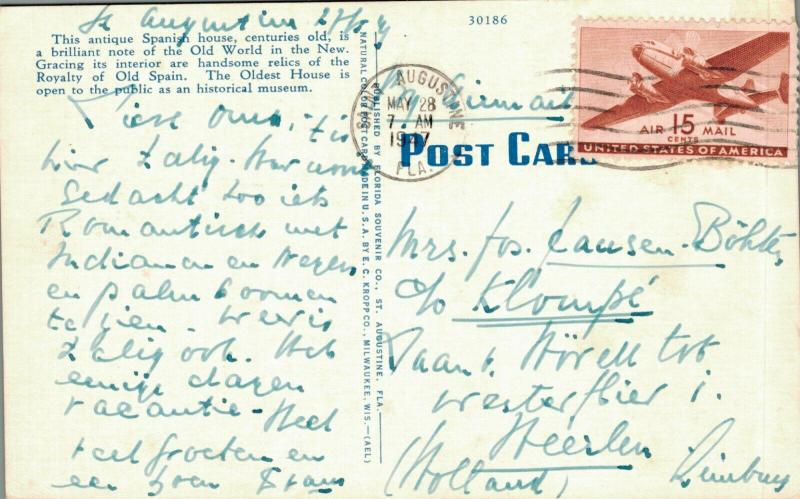 St Augustine 27/5 47
30186
This antique Spanish house, centuries old, is
a brilliant note of the Old World in the New.
Gracing its interior are handsome relics of the
Royalty of Old Spain. The Oldest House is
open to the public as an historical museum.
Lieve oma, 't is
hier zalig. Wie
gedacht zoo iets
Romantisch met
Indianen en Negers
en palmboomen
te zien. Weer is
zalig ook. Heb
eenige dagen
vacantie. Heel
veel groeten en
een zoen Frans
NATURAL COLOR POST CARD MADE IN U.S.A. BY E. C. KROPP CO., MILWAUKEE, WIS.—(AEL)
PUBLISHED BY FLORIDA SOUVENIR CO., ST. AUGUSTINE, FLA.
AUGUSTINE
MAY 28
7 AM
1947
FLA.
AIR 15 MAIL
CENTS
UNITED STATES OF AMERICA
POST CARD
Mrs. Jos. Jansen-Böhte,
c/o Klompé
Laan v. Hövell tot
Westerflier 1.
Heerlen
(Holland) Limburg